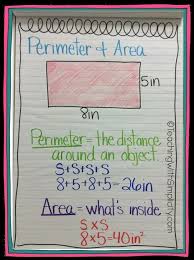 Perimeter & Area
5in
8in
Perimeter = the distance
around an object.
S+S+S+S
8+5+8+5=26in
Area = what's inside
SxS
8x5=40in²
©TeachingwithSimplicity.com